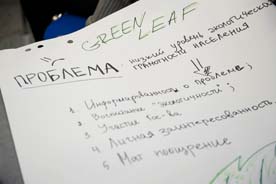 GREEN LEAF
ПРОБЛЕМА: низкий уровень экологической
грамотности населения
1. Информированность о проблеме;
2. Воспитание "экологичности";
3. Участие гос-ва
4. Личная заинтересованность
5. Мат поощрение